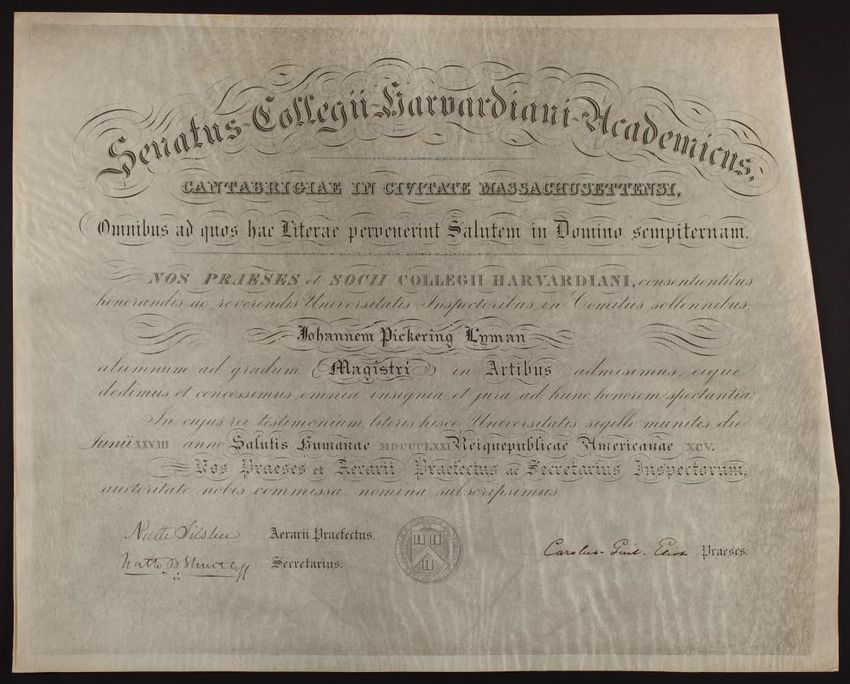 Senatus-Collegii-Harvardiani-Academicus,
CANTABRIGIAE IN CIVITATE MASSACHUSETTENSI,
Omnibus ad quos hae Literae pervenerint Salutem in Domino sempiternam.
NOS PRAESES et SOCII COLLEGII HARVARDIANI, consentientibus
honorandis ac reverendis Universitatis Inspectoribus in Comitiis sollennibus
Johannem Pickering Lyman
alumnum ad gradum Magistri in Artibus admisimus, eique
dedimus et concessimus omnia insignia et jura ad hunc honorem spectantia
In cujus rei testimonium, literis hisce Universitatis sigillo munitis die
Junii XXVIII anno Salutis Humanae MDCCCLXXI Reique publicae Americanae XCV.
Nos Praeses et Aerarii Praefectus ac Secretarius Inspectorum,
auctoritate nobis commissa, nomina subscripsimus.
Aerarii Praefectus.
Carolus Guil. Eliot Praeses.
Secretarius.